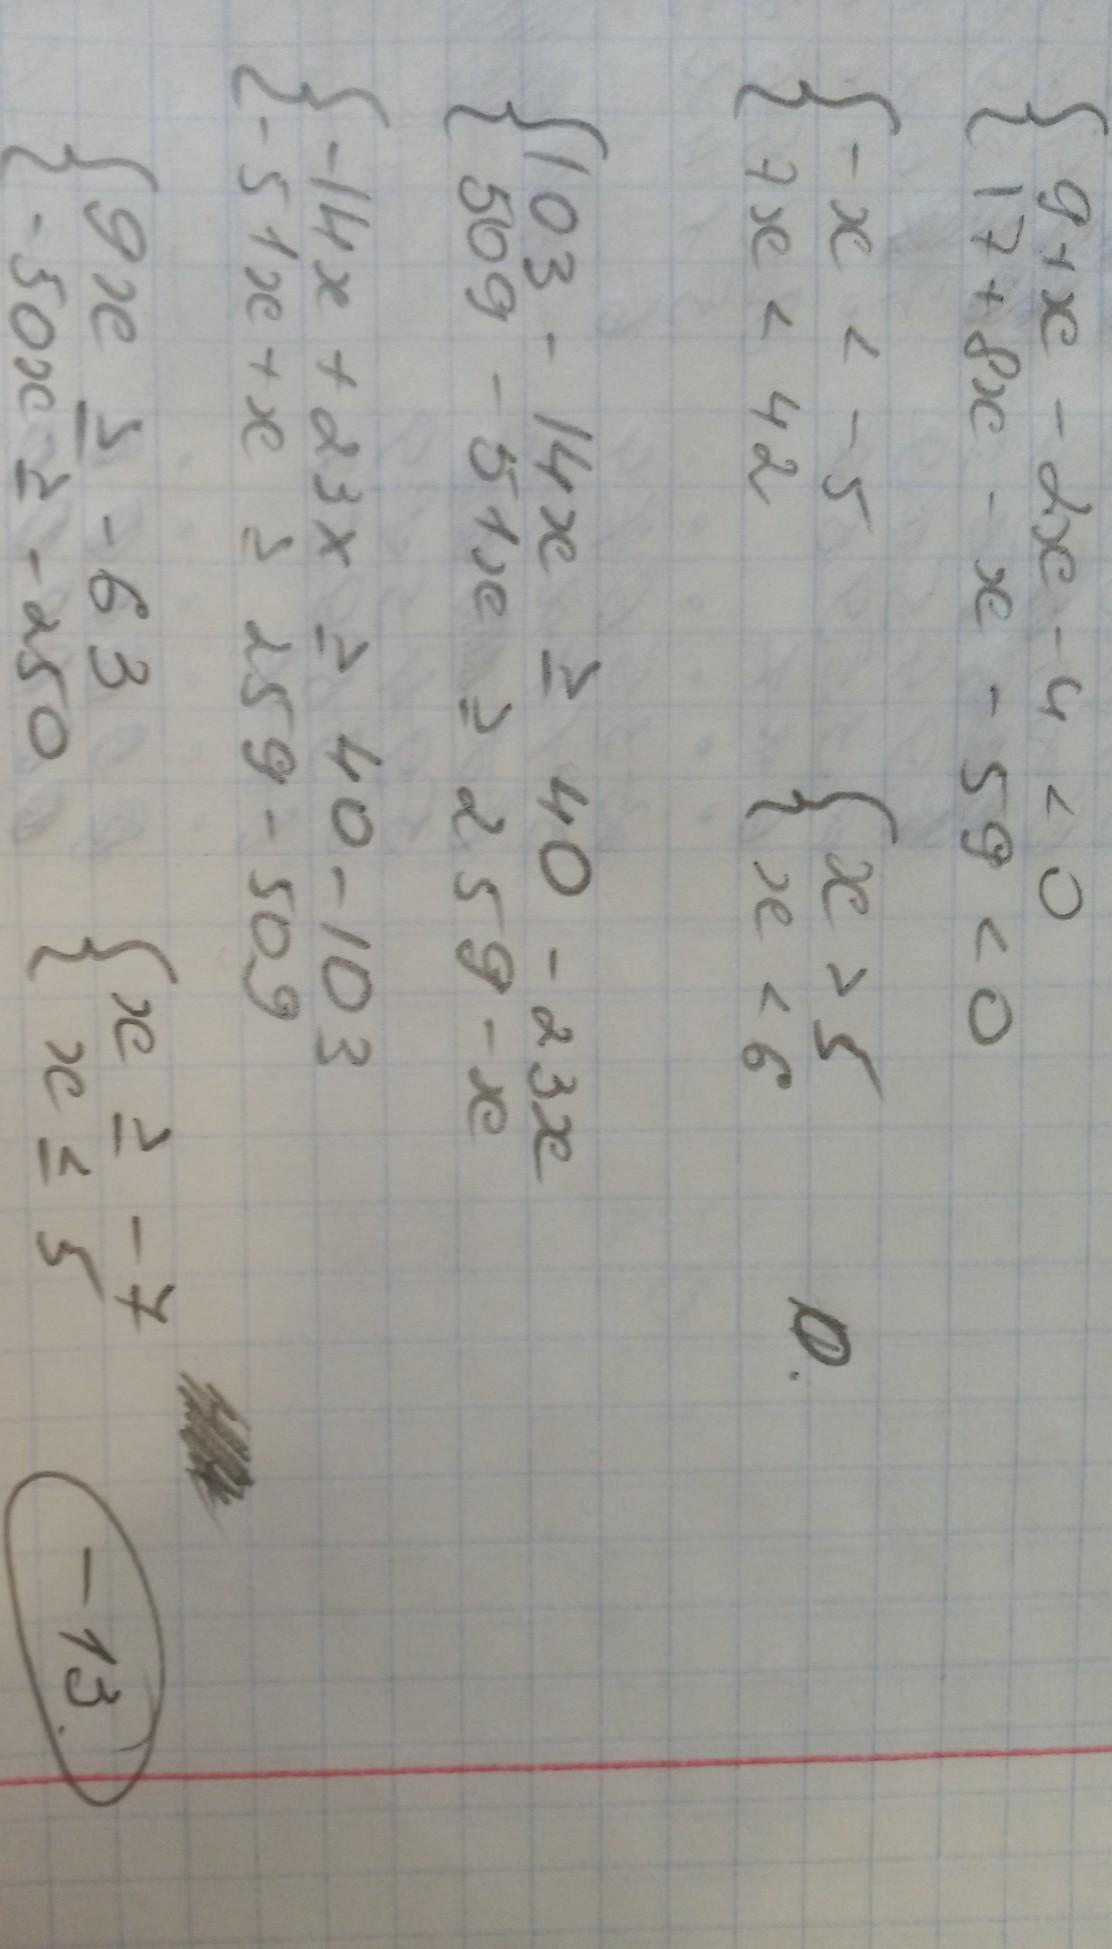 { 9+x - 2x - 4 < 0
{ 17+8x - x - 59 < 0
{ -x < -5 { x > 5
{ 7x < 42 { x < 6 0.
{ 103 - 14x ≥ 40 - 23x
{ 509 - 51x ≥ 259 - x
{ -14x + 23x ≥ 40 - 103
{ -51x + x ≥ 259 - 509
{ 9x ≥ -63 { x ≥ -7
{ -50x ≥ -250 { x ≤ 5 -13.